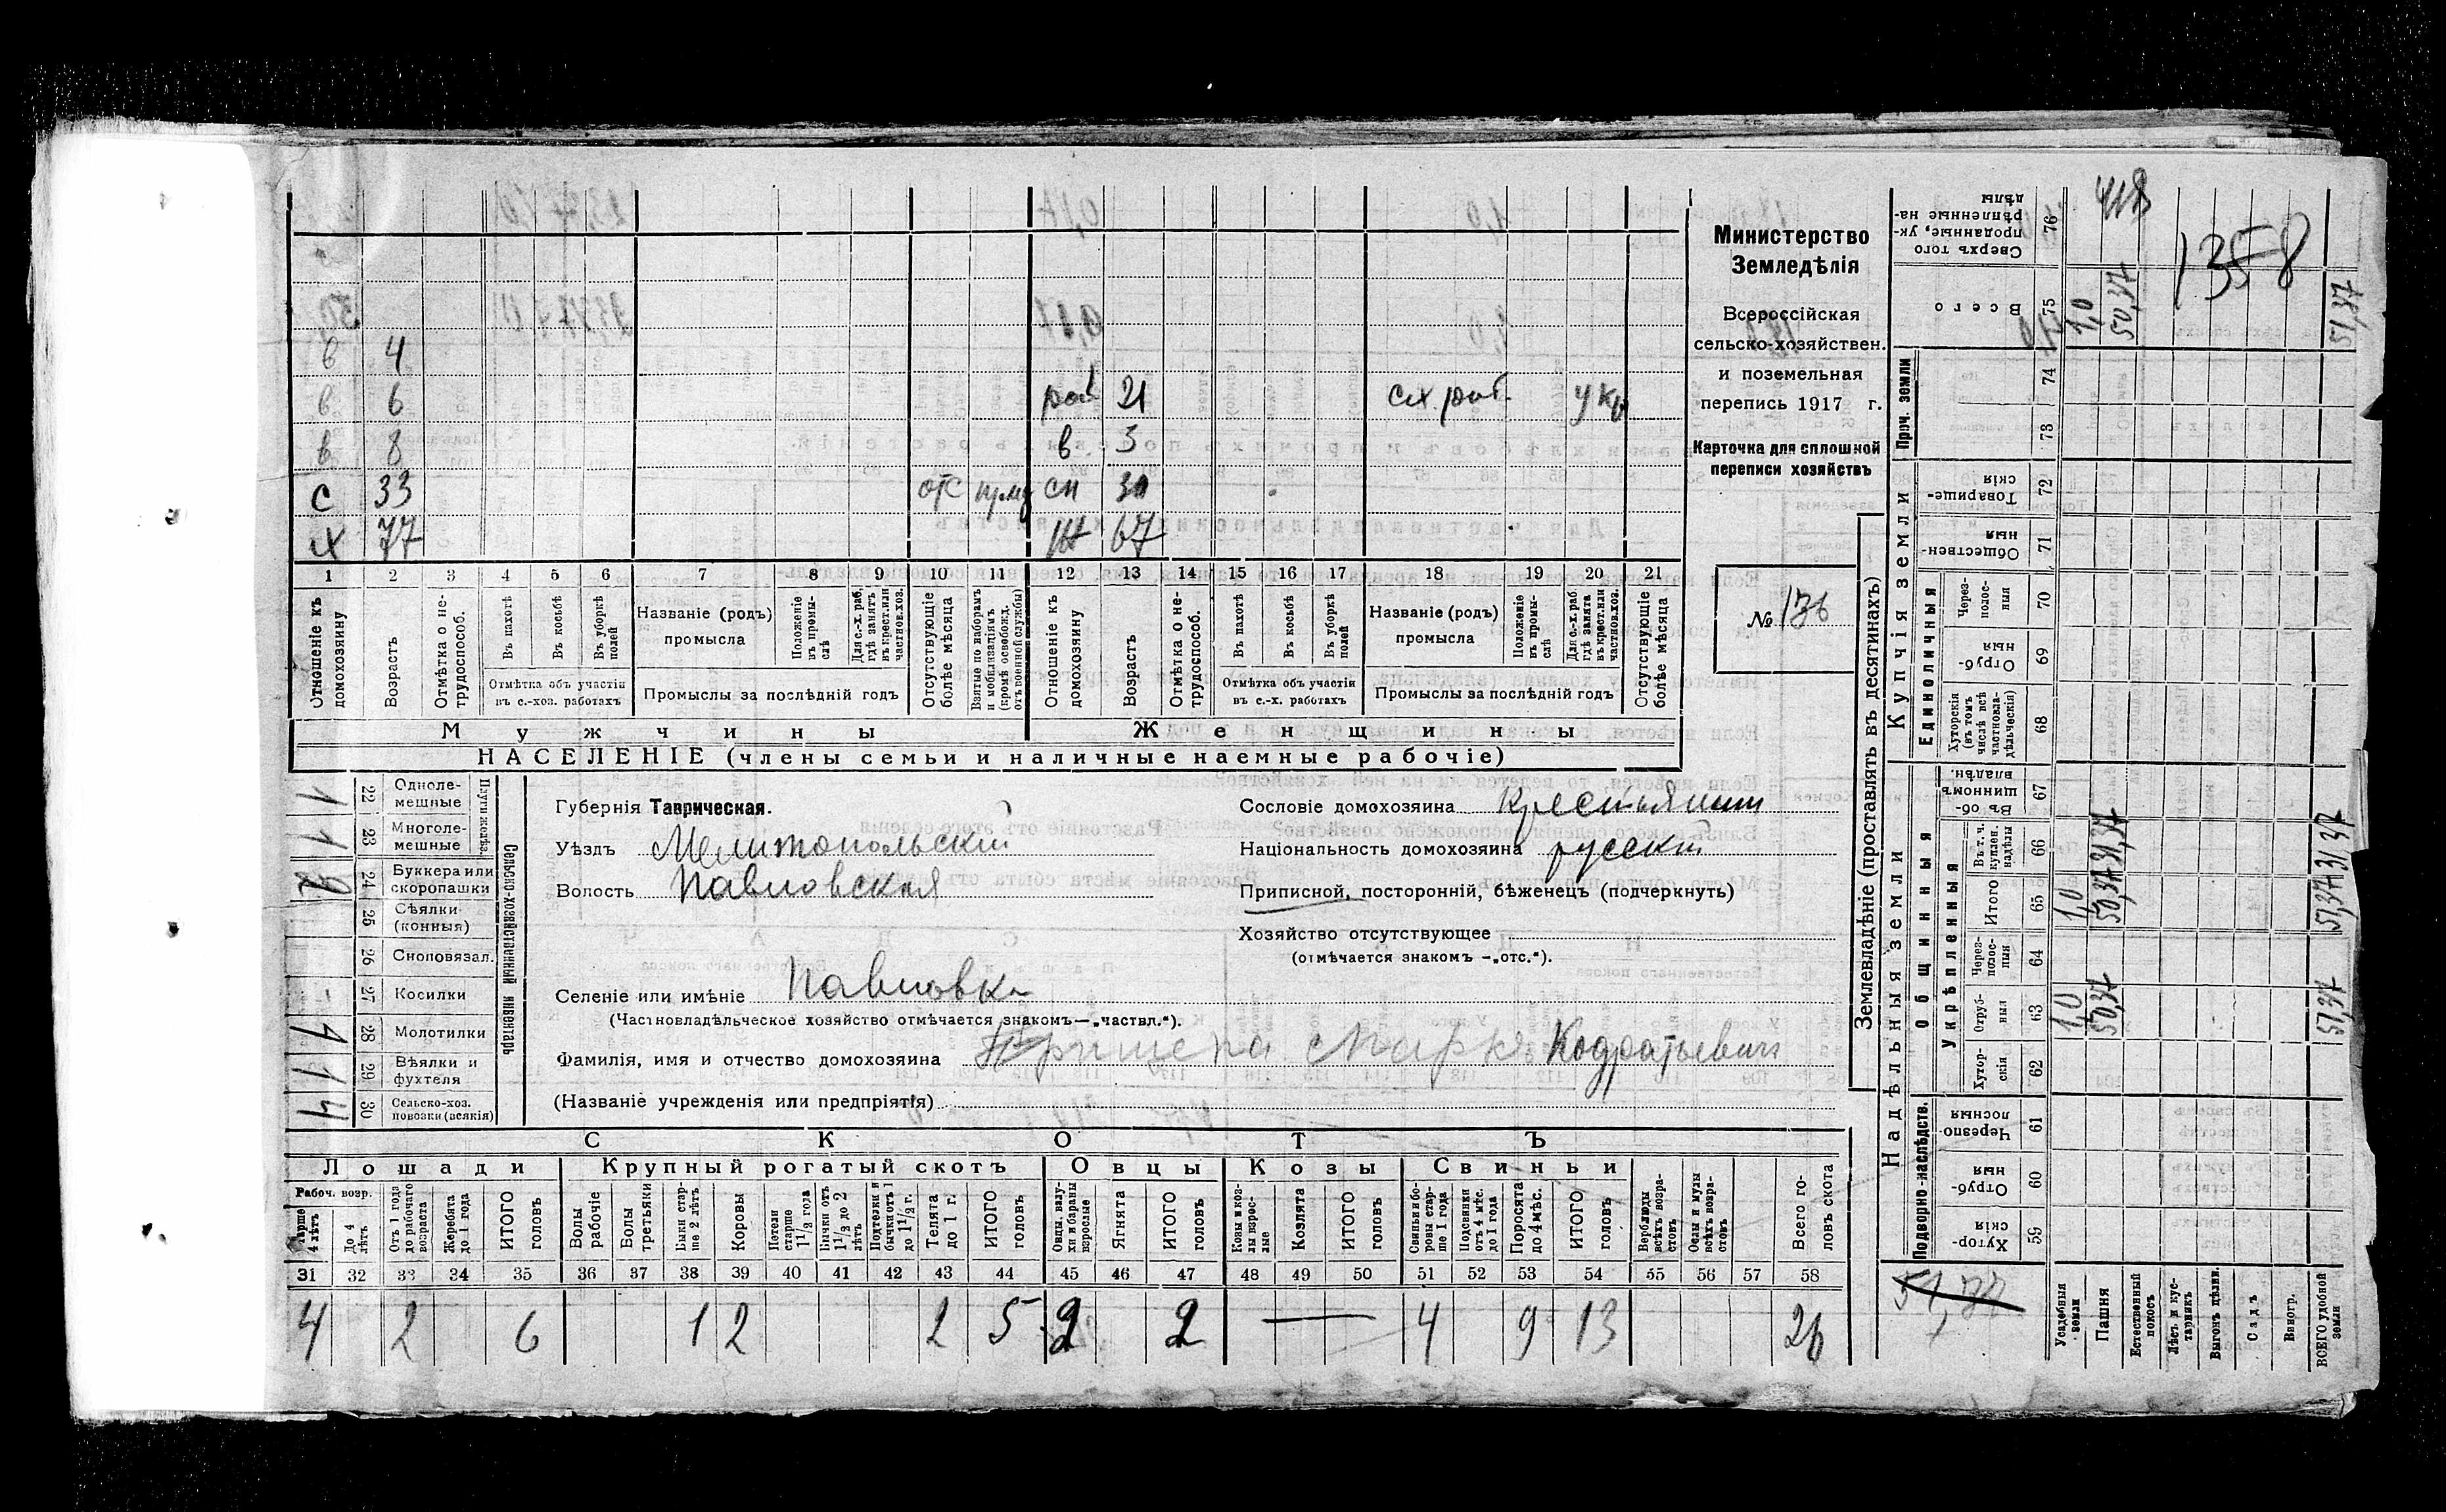 в 4
в 6 раб 21 сх. раб. укр
в 8 в. 3
с 33 отс сн 30
х 77 ж 67
1 2 3 4 5 6 7 8 9 10 11 12 13 14 15 16 17 18 19 20 21
Отношеніе къ домохозяину
Возрастъ
Отмѣтка о не-трудоспособ.
Въ пахотѣ
Въ косьбѣ
Въ уборкѣ полей
Отмѣтка объ участіи въ с.-хоз. работахъ
Названіе (родъ) промысла
Положеніе въ промы-слѣ
Для с.-х. раб, гдѣ занятъ въ крест. или частнов. хоз.
Промыслы за послѣдній годъ
Отсутствующіе болѣе мѣсяца
Взятые по наборамъ и мобилизаціямъ (кромѣ освобожд. отъ военной службы)
Отношеніе къ домохозяину
Возрастъ
Отмѣтка о не-трудоспособ.
Въ пахотѣ
Въ косьбѣ
Въ уборкѣ полей
Отмѣтка объ участіи въ с.-х. работахъ
Названіе (родъ) промысла
Положеніе въ промы-слѣ
Для с.-х. раб. гдѣ занята въ крест. или частнов. хоз.
Промыслы за послѣдній годъ
Отсутствующіе болѣе мѣсяца
Мужчины Женщины
НАСЕЛЕНІЕ (члены семьи и наличные наемные рабочіе)
Министерство
Земледѣлія
Всероссійская
сельско-хозяйствен.
и поземельная
перепись 1917 г.
Карточка для сплошной
переписи хозяйствъ
№ 136
Сельско-хозяйственный инвентарь
Плуги желѣз.
1 22 Одноле-мешные
1 23 Многоле-мешные
2 24 Буккера или скоропашки
25 Сѣялки (конныя)
26 Сноповязал.
- 27 Косилки
1 28 Молотилки
1 29 Вѣялки и фухтеля
4 30 Сельско-хоз. повозки (всякія)
Губернія Таврическая.
Уѣздъ Мелитопольскій
Волость Павловская
Селеніе или имѣніе Павловка
(Частновладѣльческое хозяйство отмѣчается знакомъ—„частвл.“).
Фамилія, имя и отчество домохозяина Прищепа Марко Кодратьевич
(Названіе учрежденія или предпріятія)
Сословіе домохозяина крестьянин
Національность домохозяина русскій
Приписной, посторонній, бѣженец (подчеркнуть)
Хозяйство отсутствующее
(отмѣчается знакомъ —„отс.“).
СКОТЪ
Лошади Крупный рогатый скотъ Овцы Козы Свиньи
Рабоч. возр.
Старше 4 лѣтъ
До 4 лѣтъ
Отъ 1 года до рабочаго возраста
Жеребята до 1 года
ИТОГО головъ
Волы рабочіе
Волы третьяки
Быки стар-ше 2 лѣтъ
Коровы
Нетели старше 1 1/2 года
Бычки отъ 1 1/2 до 2 лѣтъ
Подтелки и бычки отъ 1 до 1 1/2 г.
Телята до 1 г.
ИТОГО головъ
Овцы, валу-хи и бараны взрослые
Ягнята
ИТОГО головъ
Козы и коз-лы взрос-лые
Козлята
ИТОГО головъ
Свиньи и бо-ровы стар-ше 1 года
Подсвинки отъ 4 мѣс. до 1 года
Поросята до 4 мѣс.
ИТОГО головъ
Верблюды всѣхъ возра-стовъ
Ослы и мулы всѣхъ возра-стовъ
Всего го-ловъ скота
31 32 33 34 35 36 37 38 39 40 41 42 43 44 45 46 47 48 49 50 51 52 53 54 55 56 57 58
4 2 6 1 2 2 5 2 2 — 4 9 13 26
Землевладѣніе (проставлять въ десятинахъ)
Надѣльныя земли
Купчія земли
Проч. земли
Подворно-наслѣдств.
Общинныя
Укрѣпленныя
Единоличныя
59 Хутор-скія
60 Отруб-ныя
61 Черезпо-лосныя
62 Хутор-скія
63 Отруб-ныя 1,0 50,37 51,37
64 Через-полос-ныя
65 Итого 1,0 50,37 51,37
66 Въ т. ч. куплен. надѣлы 31,37 31,37
67 Въ об-щинномъ владѣн.
68 Хуторскія (въ томъ числѣ всѣ частновла-дѣльческія)
69 Отруб-ныя
70 Через-полос-ныя
71 Обществен-ныя
72 Товарище-скія
73
74
75 Всего 1,0 50,37 51,37
76 Сверхъ того проданные, ук-рѣпленные на-дѣлы
418
1358
51,37
Усадебныя земли
Пашня
Естественный покосъ
Лѣсъ и кус-тарникъ
Выгонъ цѣлин.
Садъ
Виногр.
ВСЕГО удобной земли